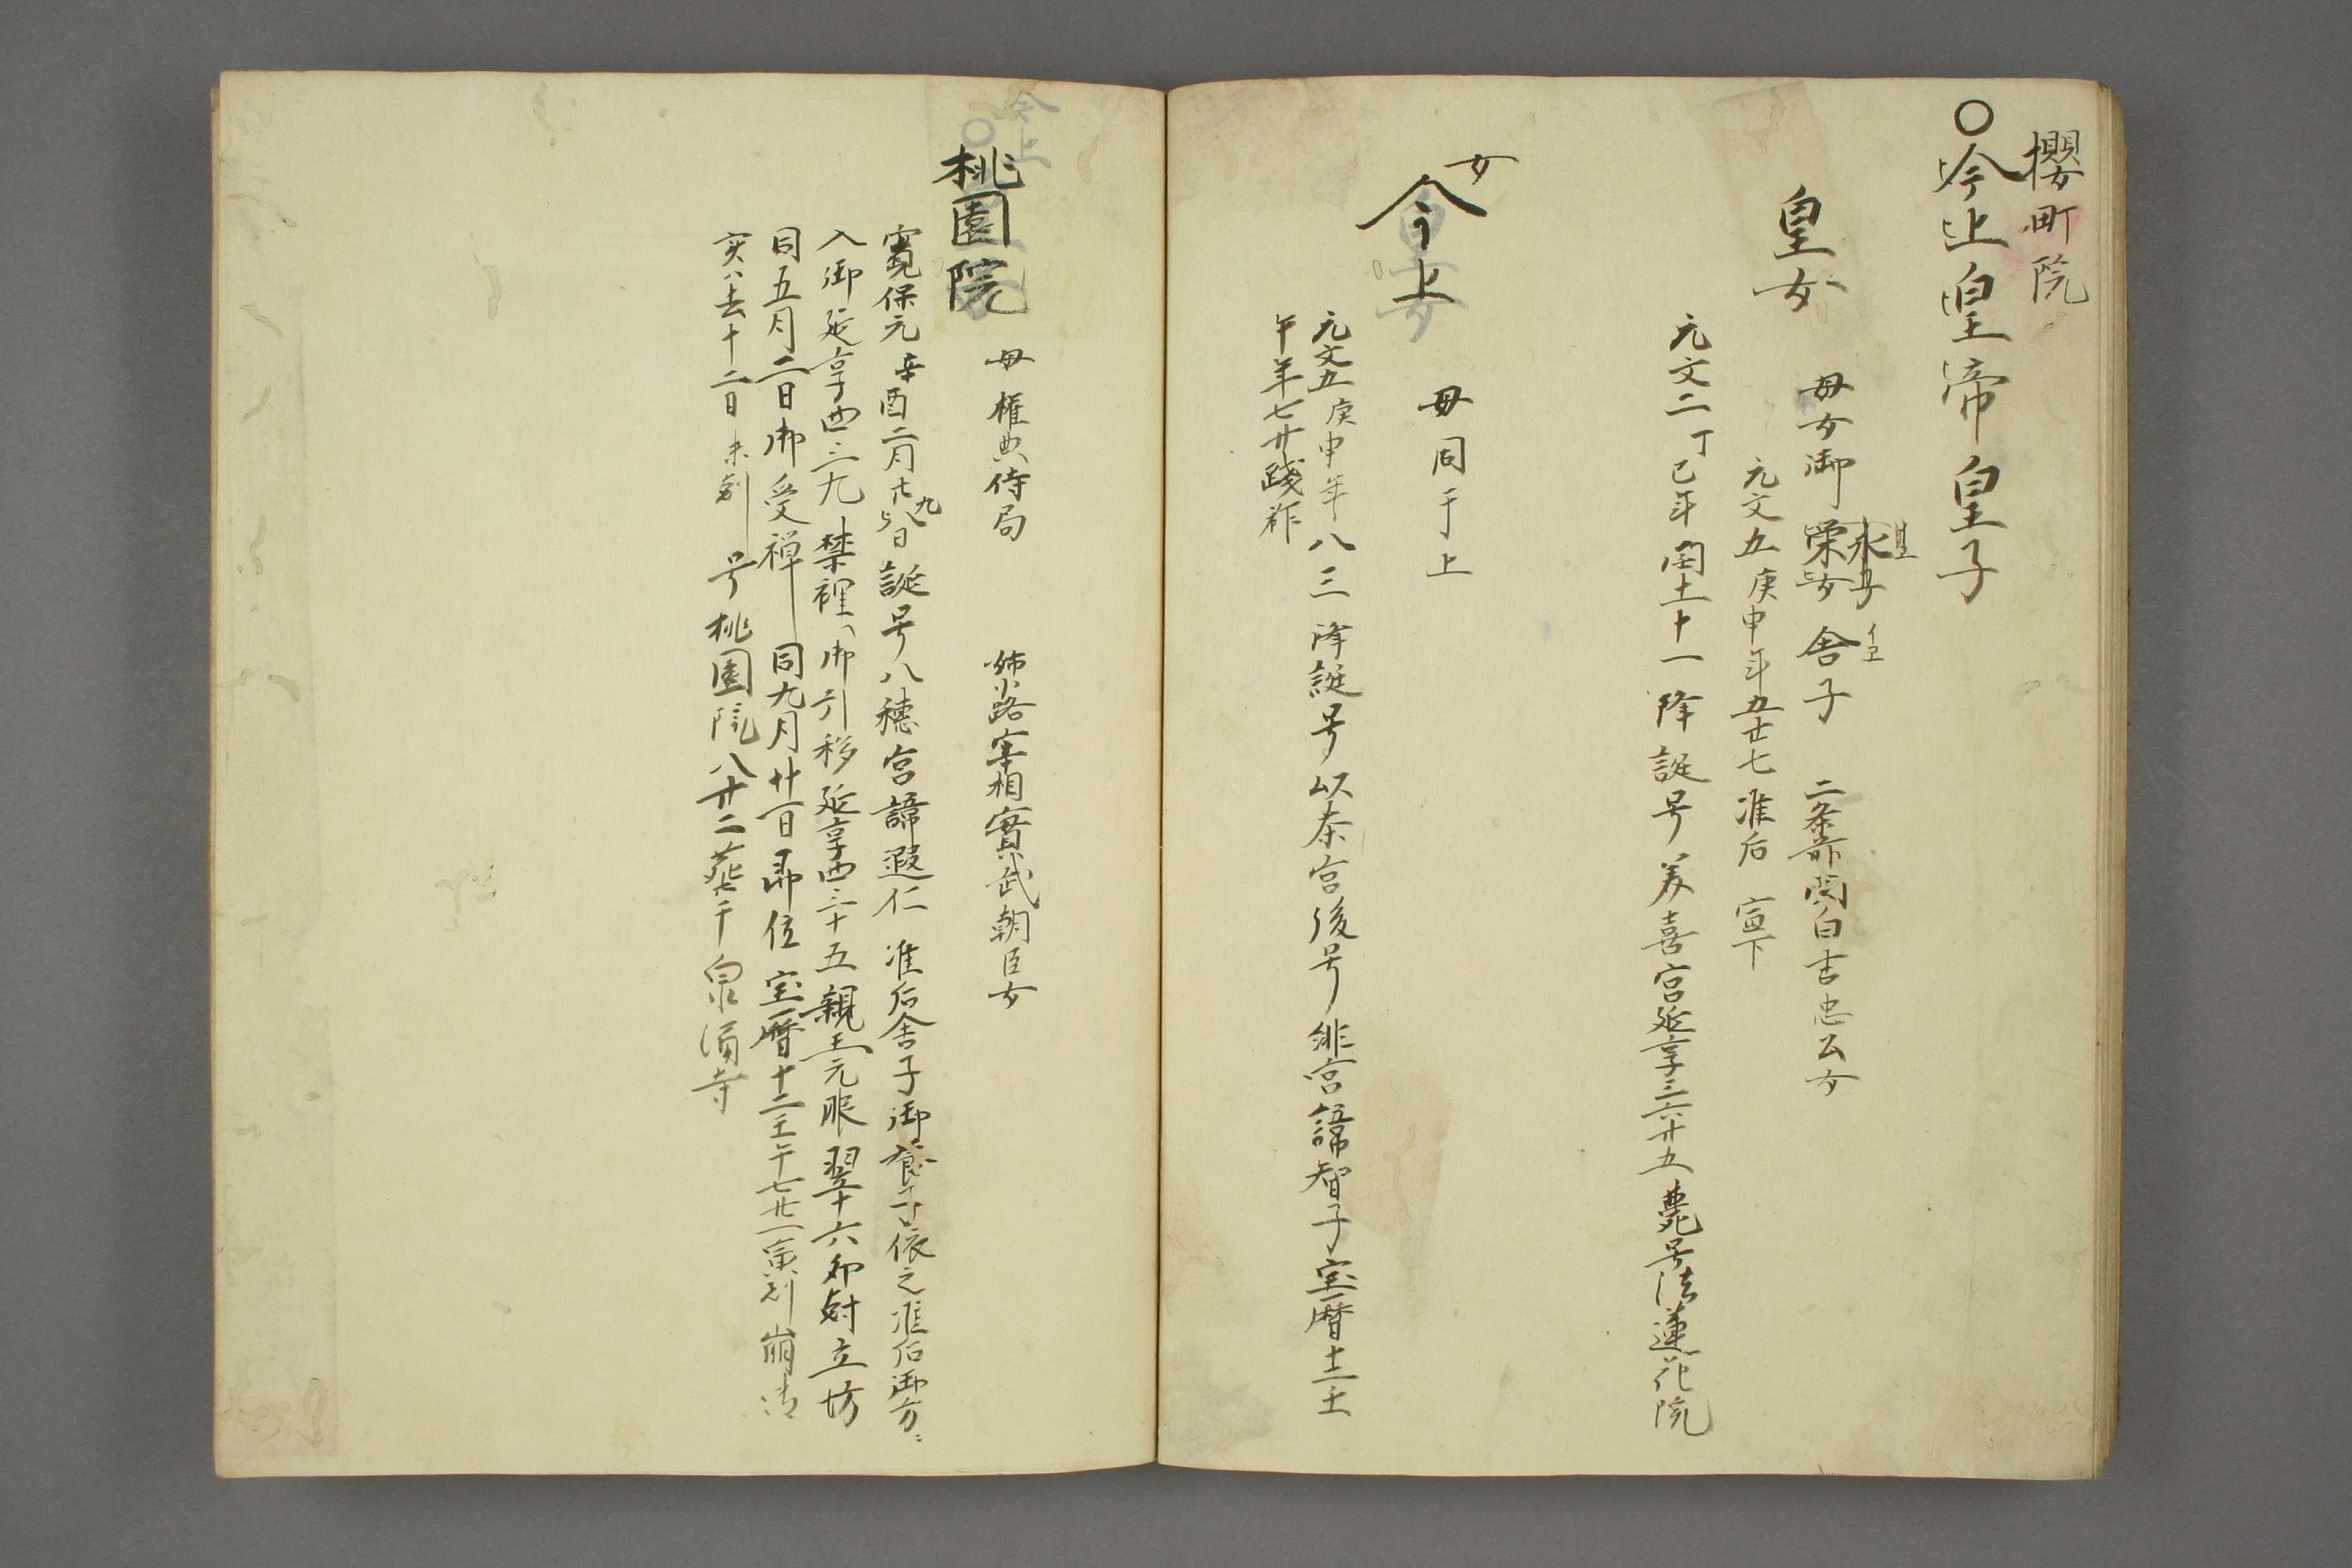 櫻町院
〇今上皇帝 皇子
皇女 母女御 舎子 二条前関白吉忠公女
元文五庚申年五廿七准后 宣下
元文二丁巳年閏十一十一降誕号美喜宮延享三六廿五薨号法蓮花院
女
今上 母同于上
元文五庚申年八三降誕号以茶宮後号緋宮諱智子宝暦十二壬
午年七廿践祚
桃園院 母権典侍局 姉小路宰相實武朝臣女
寛保元辛酉二月廿九日誕号八穂宮諱遐仁准后舎子御養子依之准后御方ニ
入御延享四三九禁裡へ御引移延享四三十五親王元服翌十六卯尅立坊
同五月二日御受禅 同九月廿一日即位 宝暦十二壬午七廿一寅刻崩御
実ハ去十二日未刻 号桃園院八廿二葬于泉涌寺